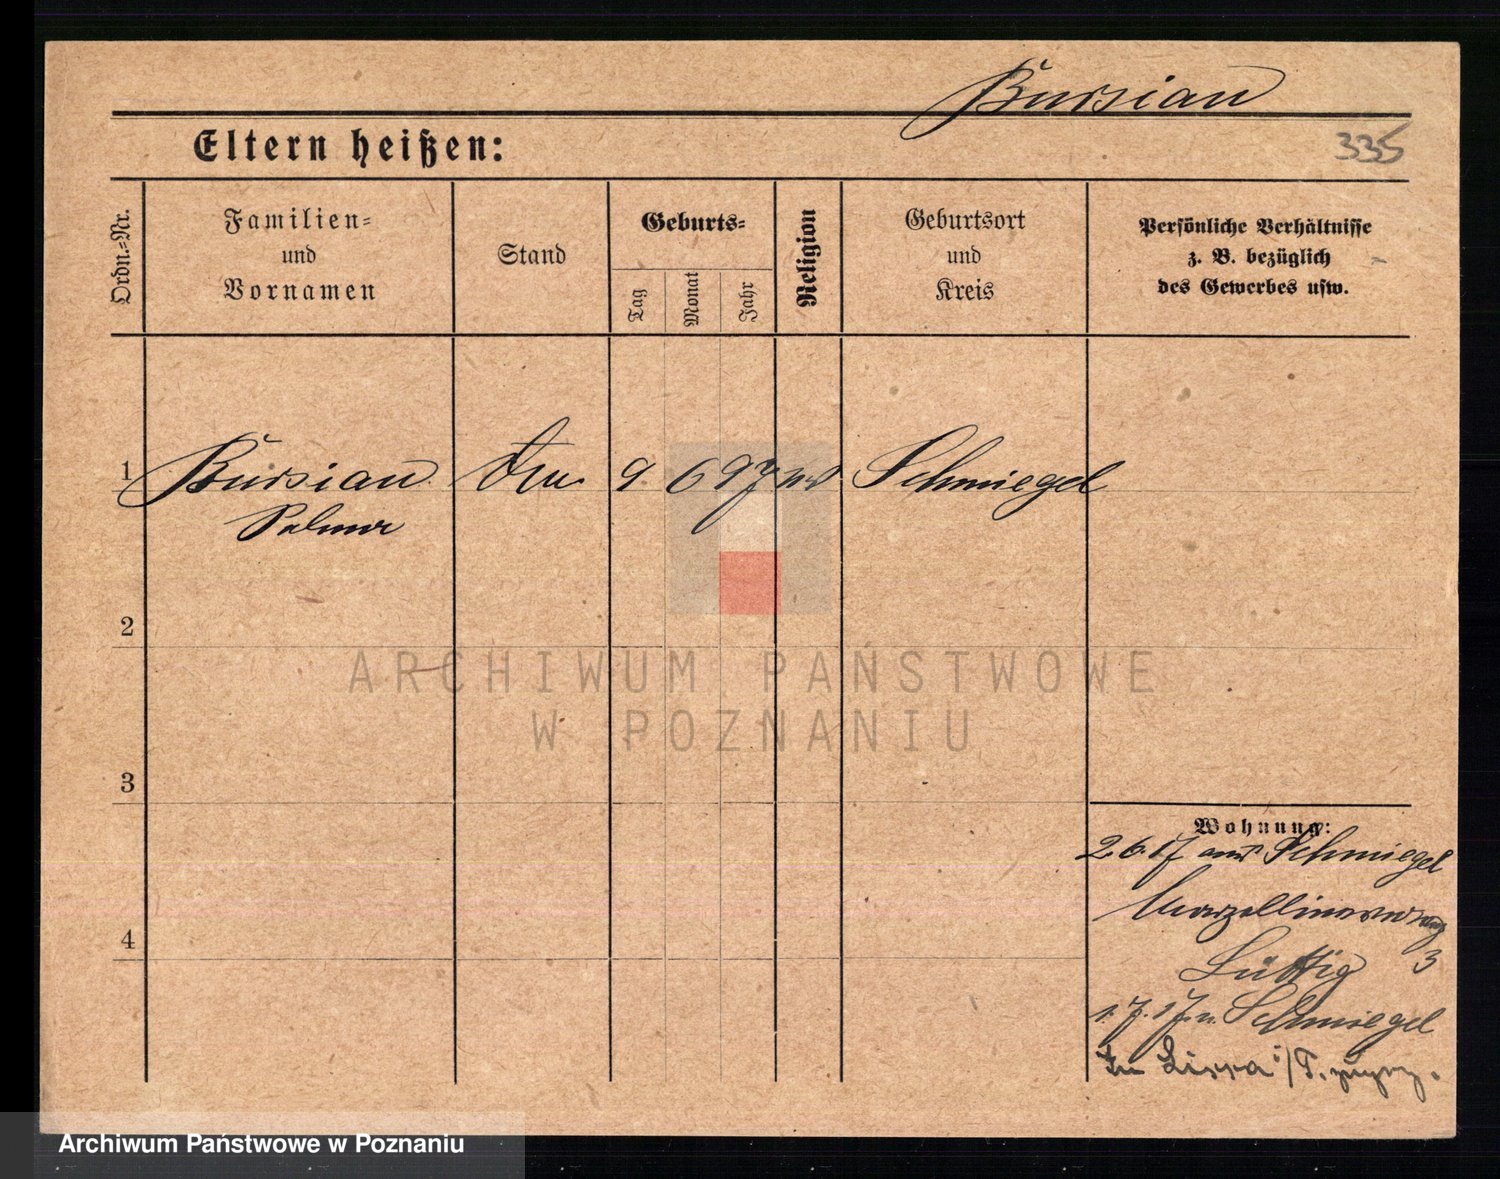 Bursian
Eltern heißen:
335
Ordn.-Nr.
Familien-
und
Vornamen
Stand
Geburts-
Tag
Monat
Jahr
Religion
Geburtsort
und
Kreis
Persönliche Verhältnisse
z. B. bezüglich
des Gewerbes usw.
1
Bursian
9
6
97
Schmiegel
2
3
4
Wohnung:
2 6. 17 aus Schmiegel
3
Lüttig
1. 7. 17. n. Schmiegel
In Lissa i/P.
ARCHIWUM PAŃSTWOWE
W POZNANIU
Archiwum Państwowe w Poznaniu